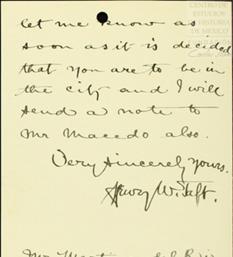 CENTRO DE
ESTUDIOS
DE HISTORIA
DE MEXICO
let me know as
soon as it is decided
that you are to be in
the city and I will
send a note to
Mr Macedo also.
Very Sincerely yours.
Henry W. Taft.